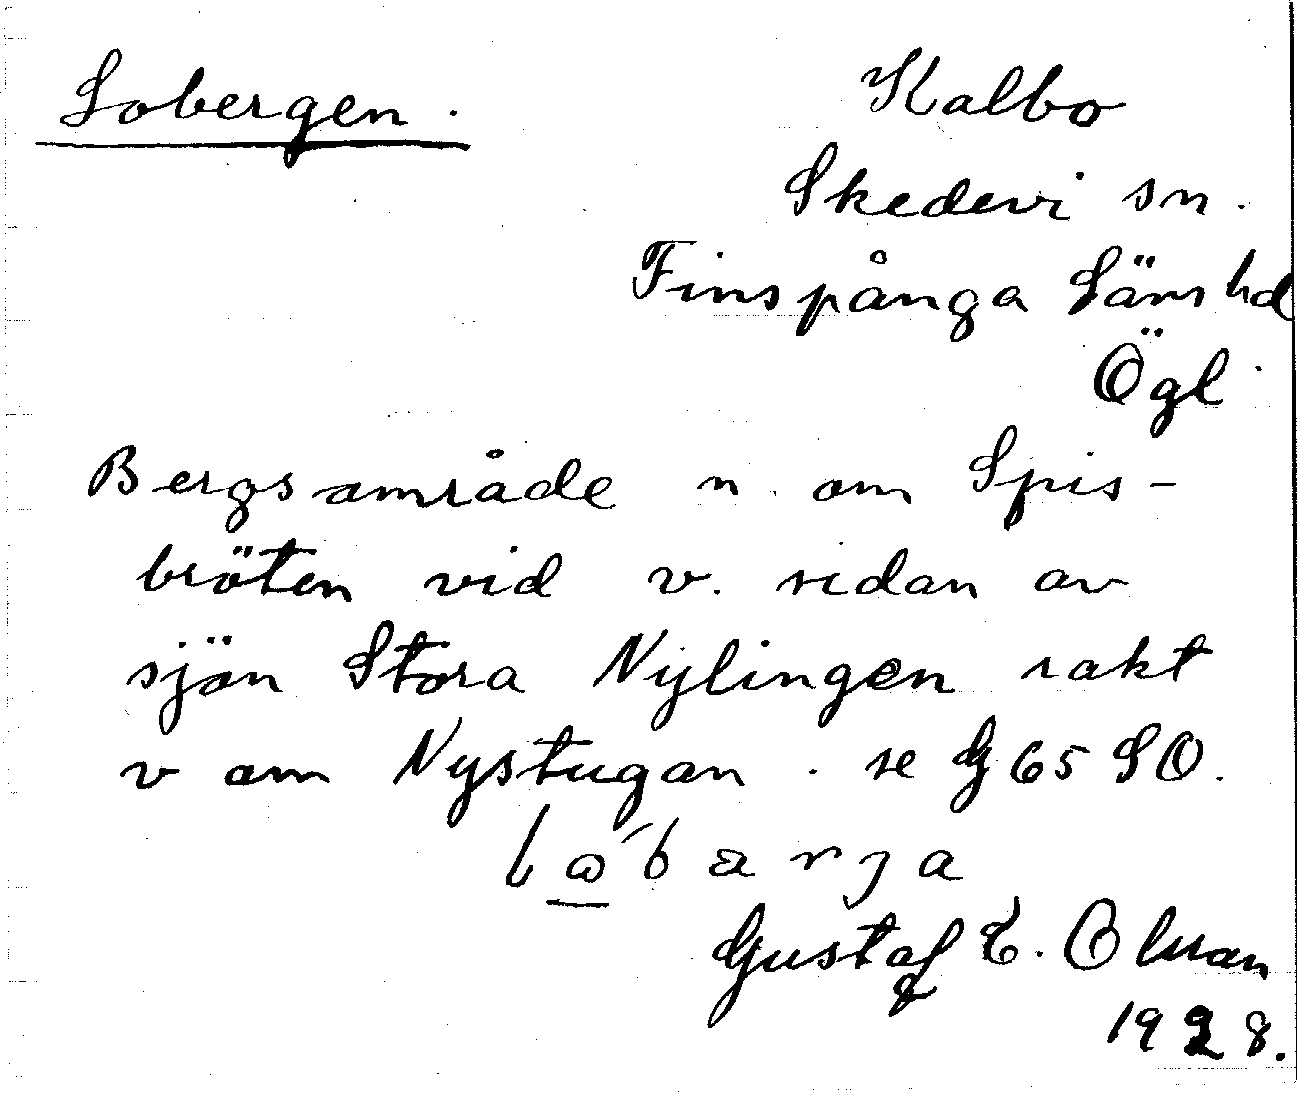 Lobergen.
Kalbo
Skedevi sn.
Finspånga Läns hd
Ögl.
Bergsområde n. om Spis-
bröten vid v. sidan av
sjön Stora Nylingen rakt
v om Nystugan. se G 65 SO.
Gustaf E. Olsson
1928.